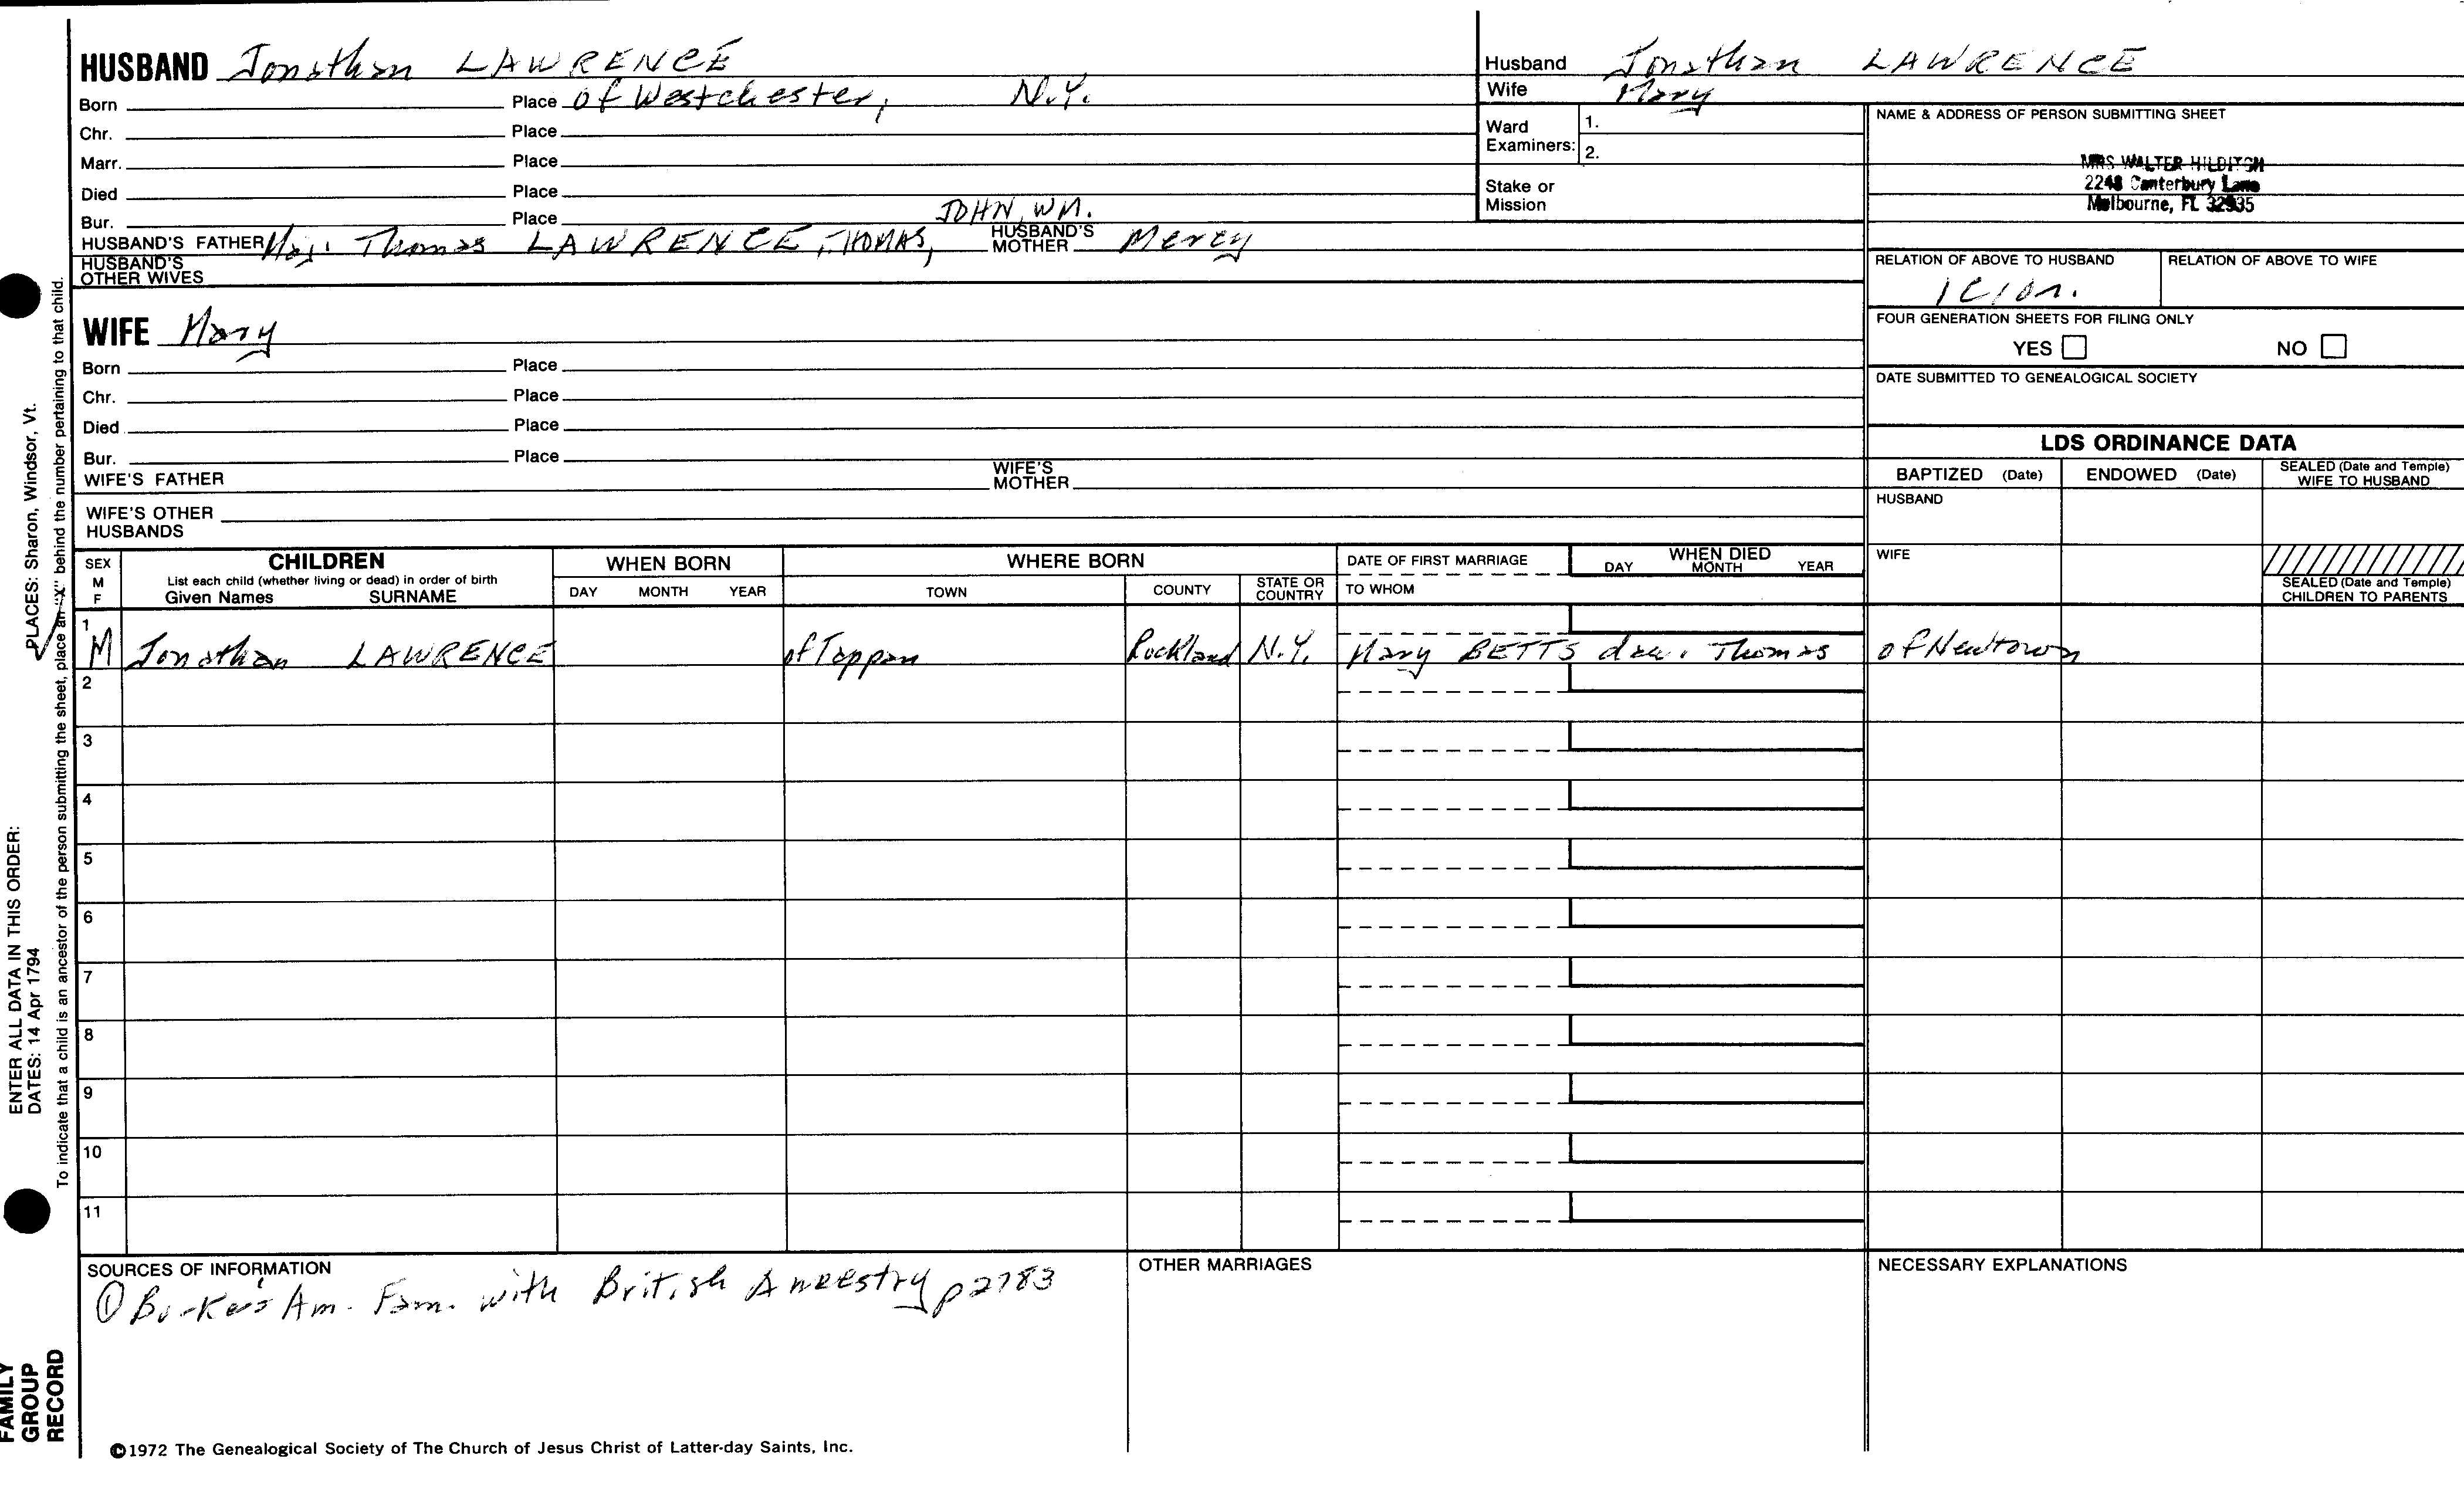 HUSBAND Jonathan LAWRENCE
Born Place of Westchester, N.Y.
Chr. Place
Marr. Place
Died Place
Bur. Place
JOHN, WM.
HUSBAND'S FATHER Maj. Thomas LAWRENCE, THOMAS, HUSBAND'S MOTHER Mercy
HUSBAND'S OTHER WIVES
WIFE Mary
Born Place
Chr. Place
Died Place
Bur. Place
WIFE'S FATHER WIFE'S MOTHER
WIFE'S OTHER HUSBANDS
Husband Jonathan LAWRENCE
Wife Mary
Ward Examiners: 1.
2.
Stake or Mission
NAME & ADDRESS OF PERSON SUBMITTING SHEET
MRS WALTER HILDITCH
2248 Canterbury Lane
Melbourne, FL 32935
RELATION OF ABOVE TO HUSBAND RELATION OF ABOVE TO WIFE
FOUR GENERATION SHEETS FOR FILING ONLY
YES NO
DATE SUBMITTED TO GENEALOGICAL SOCIETY
LDS ORDINANCE DATA
BAPTIZED (Date) ENDOWED (Date) SEALED (Date and Temple) WIFE TO HUSBAND
HUSBAND
WIFE
SEALED (Date and Temple) CHILDREN TO PARENTS
SEX M F
CHILDREN
List each child (whether living or dead) in order of birth
Given Names SURNAME
WHEN BORN
DAY MONTH YEAR
WHERE BORN
TOWN COUNTY STATE OR COUNTRY
DATE OF FIRST MARRIAGE
TO WHOM
WHEN DIED
DAY MONTH YEAR
1
M Jonathan LAWRENCE of Tappan Rockland N.Y. Mary BETTS dau. Thomas of Newtown
2
3
4
5
6
7
8
9
10
11
SOURCES OF INFORMATION
① Burke's Am. Fam. with British Ancestry p2783
OTHER MARRIAGES
NECESSARY EXPLANATIONS
©1972 The Genealogical Society of The Church of Jesus Christ of Latter-day Saints, Inc.
FAMILY GROUP RECORD
ENTER ALL DATA IN THIS ORDER:
DATES: 14 Apr 1794 PLACES: Sharon, Windsor, Vt.
To indicate that a child is an ancestor of the person submitting the sheet, place an "X" behind the number pertaining to that child.